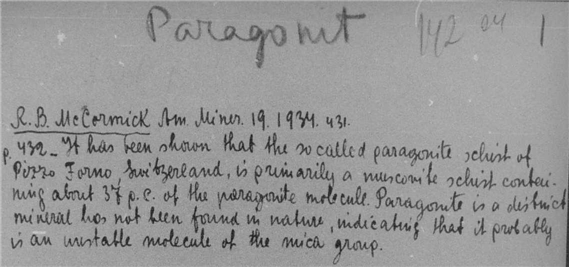 Paragonit 142 04 1
R. B. McCormick Am. Miner. 19. 1934. 431.
p. 432 – It has been shown that the so called paragonite schist of
Pizzo Forno Switzerland, is primarily a muscovite schist contai-
ning about 37 p.c. of the paragonite molecule. Paragonite is a district
mineral has not been found in nature, indicating that it probably
is an unstable molecule of the mica group.